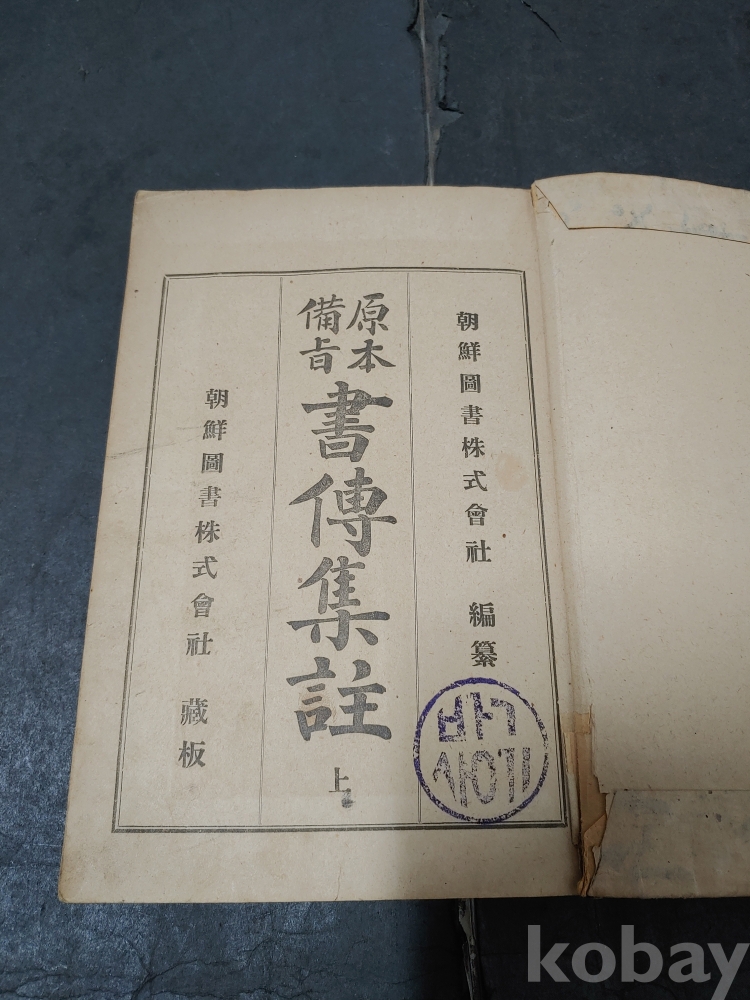 朝鮮圖書株式會社 編纂
原本
備旨
書傳集註 上
朝鮮圖書株式會社 藏板
kobay